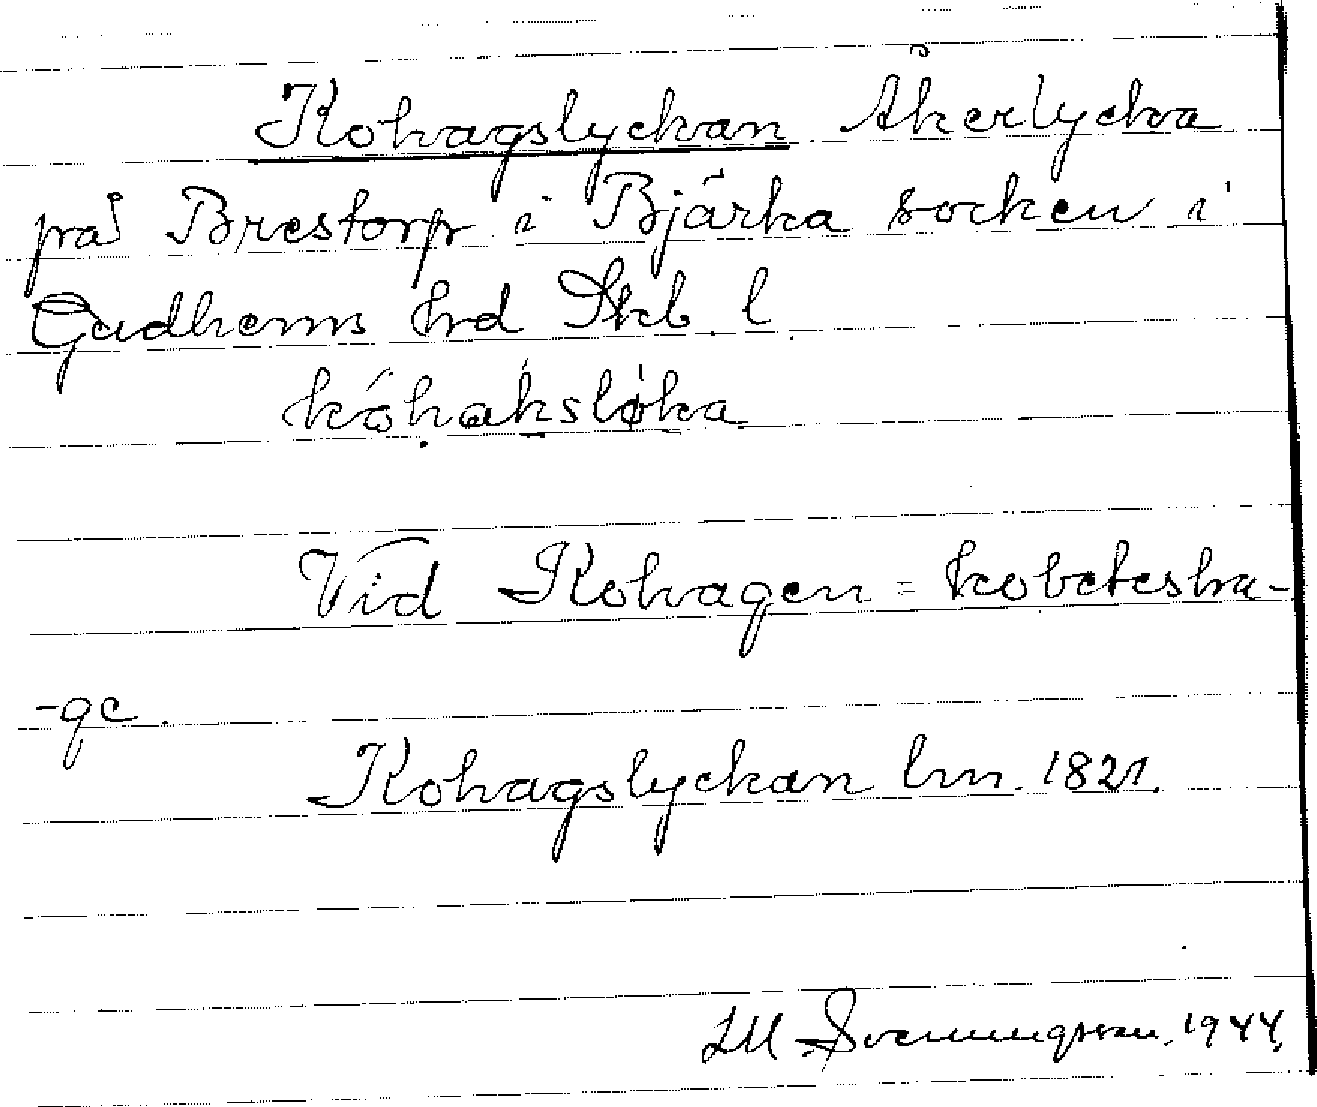 Kohagslyckan Åkerlycka
på Brestorp i Bjärka socken i
Gudhems hrd Skb. l
kóhaksløka
Vid Kohagen = kobetesha-
-ge.
Kohagslyckan lm. 1821.
Svenungsson. 1944.